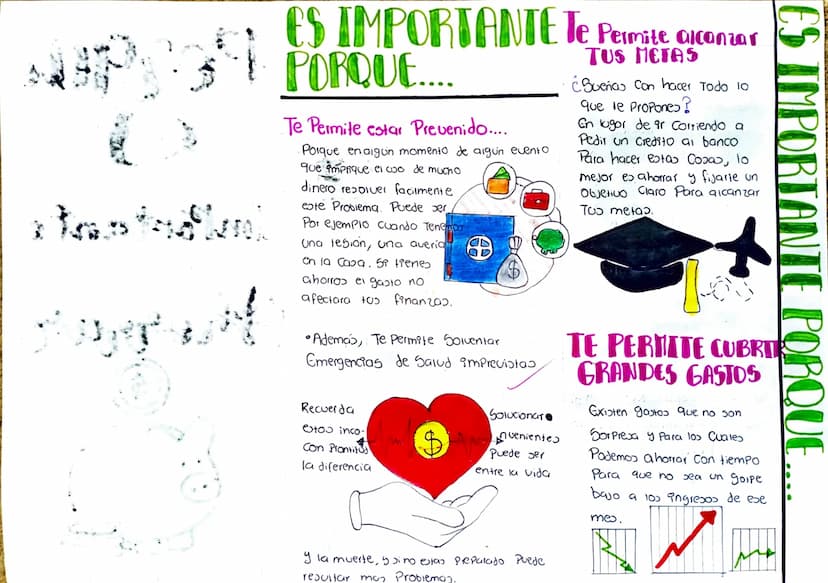 ES IMPORTANTE
PORQUE....
Te Permite estar Prevenido....
Porque en algún momento de algún evento
que implique el uso de mucho
dinero resolver facilmente
este Problema. Puede ser
Por ejemplo cuando tenemos
una lesión, una averia
en la casa. Si tienes
ahorros el gasto no
afectara tus finanzas.
•Además, Te Permite Solventar
Emergencias de Salud imprevistas
Recuerda Solucionar
estos inco- nvenientes
con Prontitud Puede ser
la diferencia entre la vida
$
y la muerte, y si no estas preparado Puede
resultar mas Problemas.
Te Permite alcanzar
TUS METAS
¿Sueñas con hacer todo lo
que te propones?
En lugar de ir corriendo a
Pedir un credito al banco
Para hacer estas cosas, lo
mejor es ahorrar y fijarte un
Objetivo Claro Para alcanzar
Tus metas.
$
TE PERMITE CUBRIR
GRANDES GASTOS
Existen gastos que no son
Sorpresa y Para los cuales
Podemos ahorrar con tiempo
Para que no sea un golpe
bajo a los ingresos de ese
mes.
ES IMPORTANTE PORQUE....